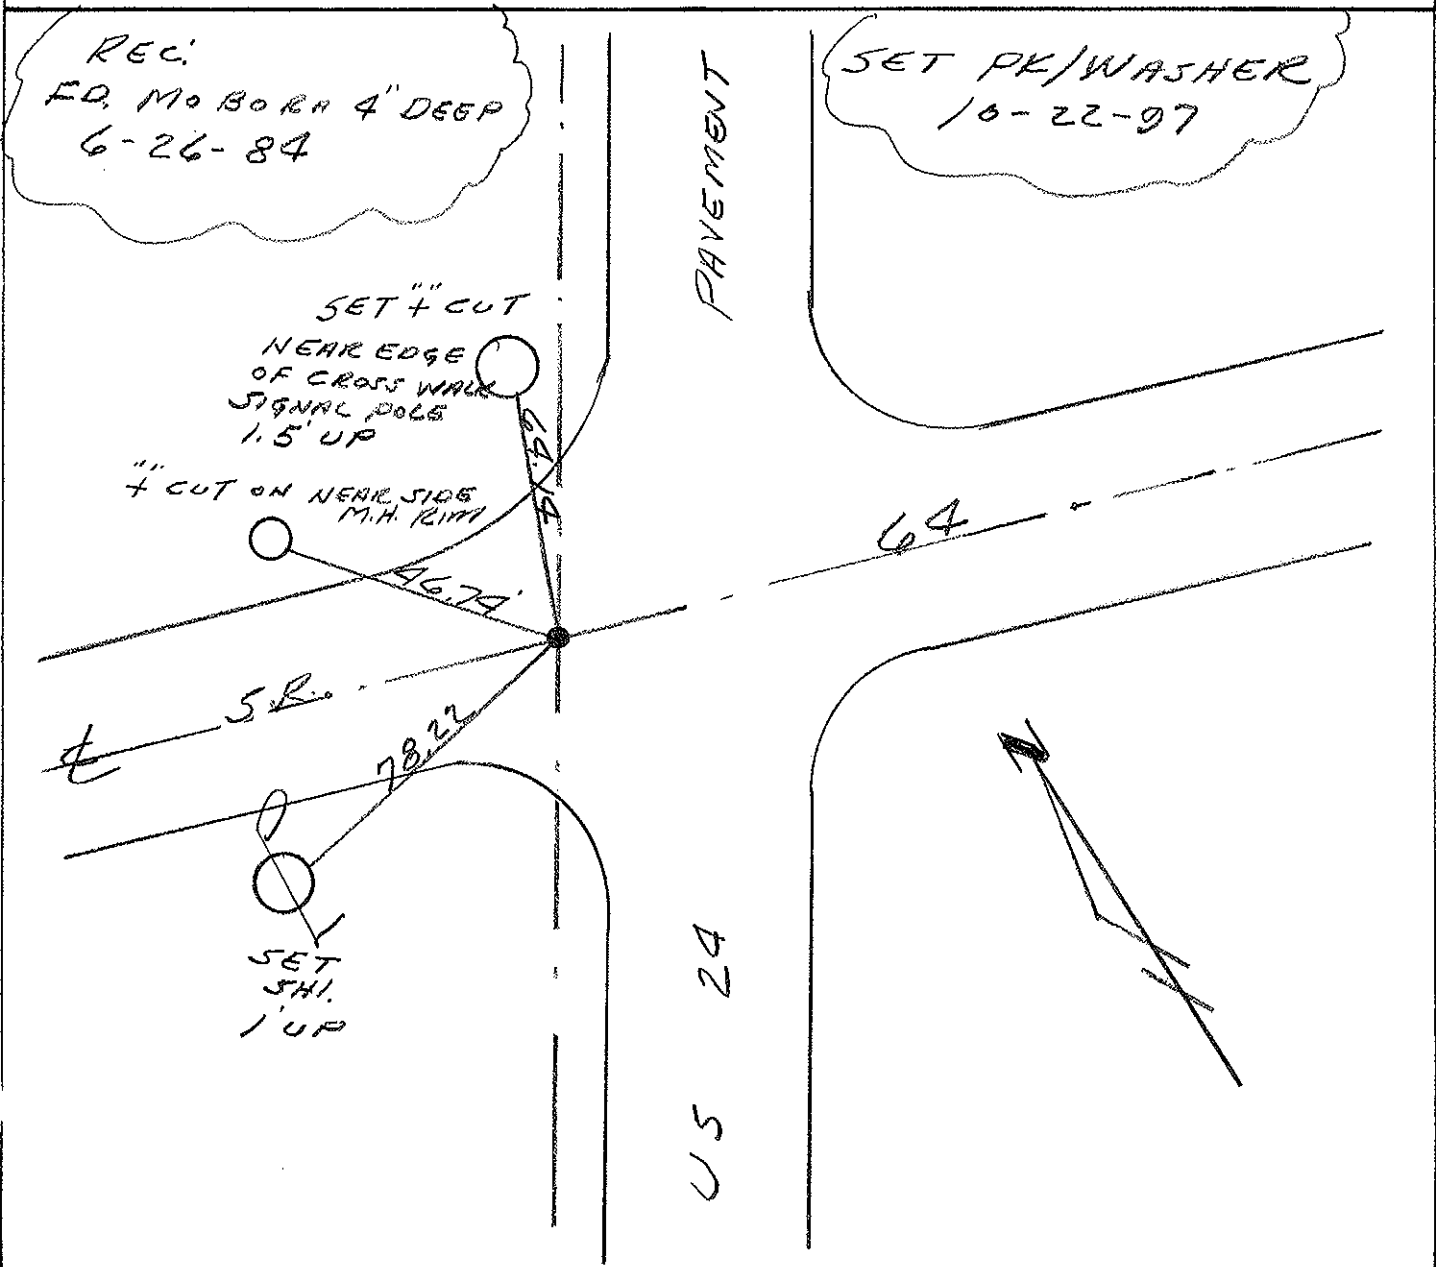 REC:
FD. MO BO RA 4" DEEP
6-26-84
SET PK/WASHER
10-22-97
PAVEMENT
SET "+" CUT
NEAR EDGE
OF CROSS WALK
SIGNAL POLE
1.5' UP
64.14
"+" CUT ON NEAR SIDE
M.H. RIM
46.74'
64
S.R.
℄
78.22
SET
SHI.
1' UP
US 24